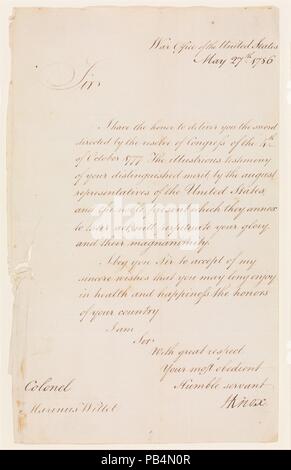 War Office of the United States
May 27th 1786
Sir
I have the honor to deliver you the sword
directed by the resolve of Congress of the 4th
of October 1777. The illustrious testimony
of your distinguished merit by the august
representatives of the United States,
and the
present which they annex
to
perpetuate your glory
and their magnanimity.
I beg you Sir to accept of my
sincere wishes that you may long enjoy
in health and happiness the honors
of your country
I am
Sir
With great respect
Your most obedient
Humble servant
HKnox
Colonel
Marinus Willet
alamy
PB4N0R
www.alamy.com